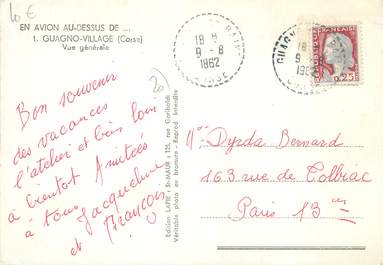 10€
EN AVION AU-DESSUS DE ...
1. GUAGNO-VILLAGE (Corse)
Vue générale
18 H
9 - 8
1962
CORSE
GUAGNO
18 H
9
1962
0,25
20
Bon souvenir
des vacances
l'atelier et bien loin
à bientot Amitiés
à tous Jacqueline
et François
Edition LAPIE : St-MAUR : 125, rue Garibaldi
Véritable photo au bromure - Reprod. Interdite
Dyrda Bernard
163 rue de Tolbiac
Paris 13